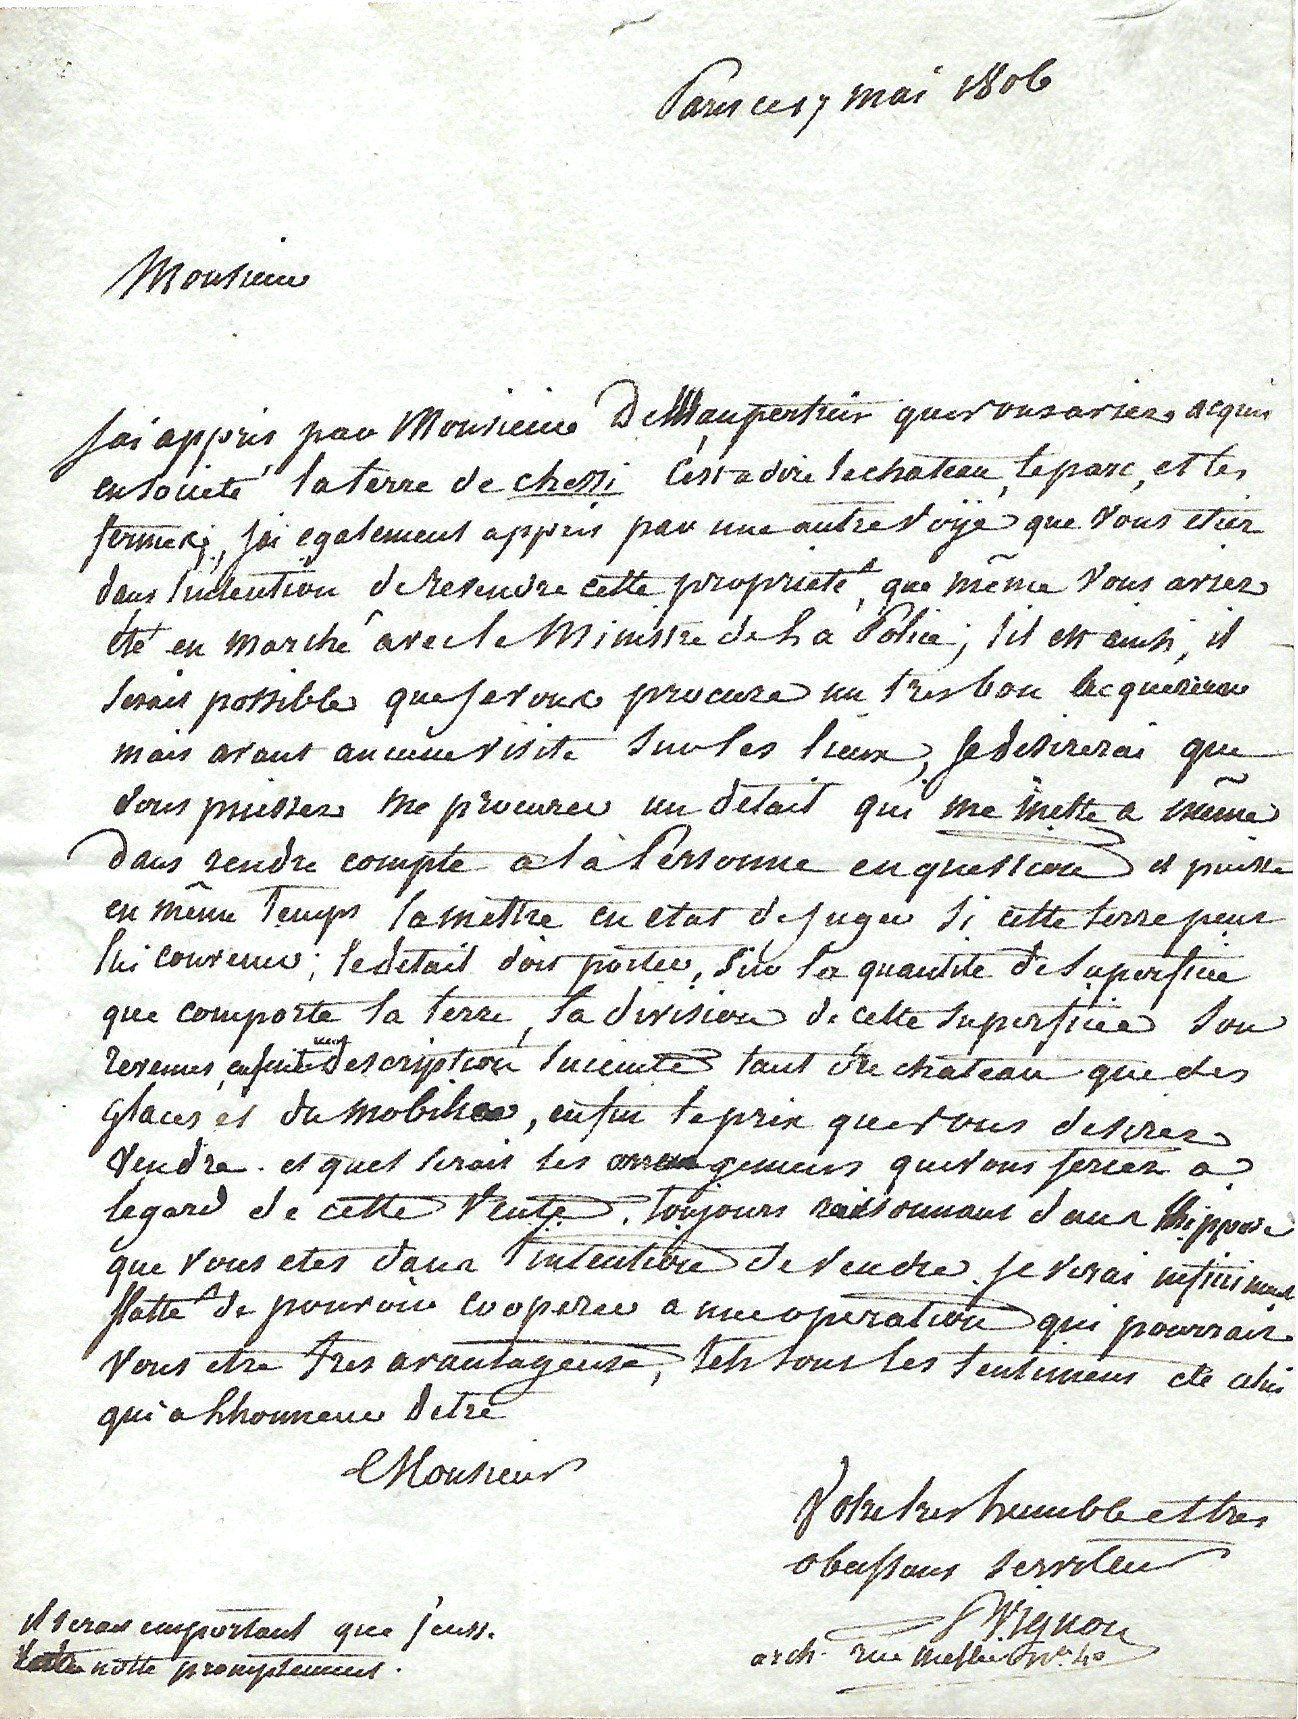 Paris ce 17 mai 1806
Monsieur
J'ai appris par Monsieur De Maupertuis que vous aviez acquis
en société la terre de chessi C'est a dire le chateau, le parc, et les
fermes; j'ai egalement appris par une autre voye que vous etiez
dans l'intention de revendre cette proprieté, que même vous aviez
été en marché avec le Ministre de La Police; s'il est ainsi, il
serait possible que je vous procure un tres bon acquereur
mais avant aucune visite sur les lieux, je desirerai que
vous puissiez me procurer un détail qui me mette a même
d'en rendre compte a la Personne en question et puisse
en même temps la mettre en etat de juger si cette terre peut
lui convenir; le détail doit porter, sur la quantité de superficie
que comporte la terre, la division de cette superficie son
revenus, ensuite une description succinte tant du chateau que des
glaces et du mobilier, enfin le prix que vous desirez
vendre. et quel serait les arrangemens que vous feriez a
legard de cette Vente. toujours raisonnant dans
que vous etes dans l'intention de vendre. je serai infiniment
flatté de pouvoir cooperer a une operation qui pourrait
vous etre tres avantageuse, tels sont les sentimens de celui
qui a lhonneur detre
Monsieur
Votre tres humble et tres
obeissant serviteur
Vignon
arch. rue Meslée N° 40
il serait important que j'eusse
votre notte promptement.